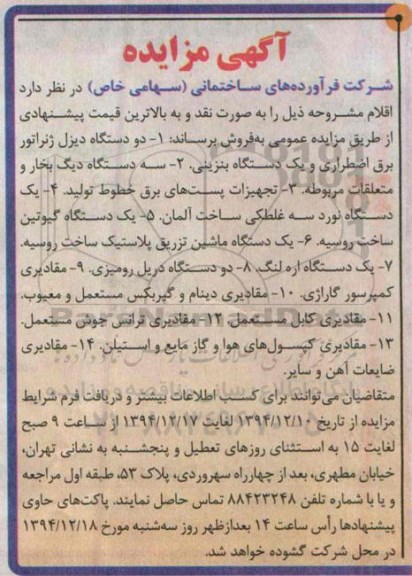 آگهی مزایده
شرکت فرآورده‌های ساختمانی (سهامی خاص) در نظر دارد
اقلام مشروحه ذیل را به صورت نقد و به بالاترین قیمت پیشنهادی
از طریق مزایده عمومی به‌فروش برساند: ۱- دو دستگاه دیزل ژنراتور
برق اضطراری و یک دستگاه بنزینی. ۲- سه دستگاه دیگ بخار و
متعلقات مربوطه. ۳- تجهیزات پست‌های برق خطوط تولید. ۴- یک
دستگاه نورد سه غلطکی ساخت آلمان. ۵- یک دستگاه گیوتین
ساخت روسیه. ۶- یک دستگاه ماشین تزریق پلاستیک ساخت روسیه.
۷- یک دستگاه اره لنگ. ۸- دو دستگاه دریل رومیزی. ۹- مقادیری
کمپرسور گاراژی. ۱۰- مقادیری دینام و گیربکس مستعمل و معیوب.
۱۱- مقادیری کابل مستعمل. ۱۲- مقادیری ترانس جوش مستعمل.
۱۳- مقادیری کپسول‌های هوا و گاز مایع و استیلن. ۱۴- مقادیری
ضایعات آهن و سایر.
متقاضیان می‌توانند برای کسب اطلاعات بیشتر و دریافت فرم شرایط
مزایده از تاریخ ۱۳۹۴/۱۲/۱۰ لغایت ۱۳۹۴/۱۲/۱۷ از ساعت ۹ صبح
لغایت ۱۵ به استثنای روزهای تعطیل و پنجشنبه به نشانی تهران،
خیابان مطهری، بعد از چهارراه سهروردی، پلاک ۵۳، طبقه اول مراجعه
و یا با شماره تلفن ۸۸۴۲۳۲۴۸ تماس حاصل نمایند. پاکت‌های حاوی
پیشنهادها رأس ساعت ۱۴ بعدازظهر روز سه‌شنبه مورخ ۱۳۹۴/۱۲/۱۸
در محل شرکت گشوده خواهد شد.
ParsNamadData